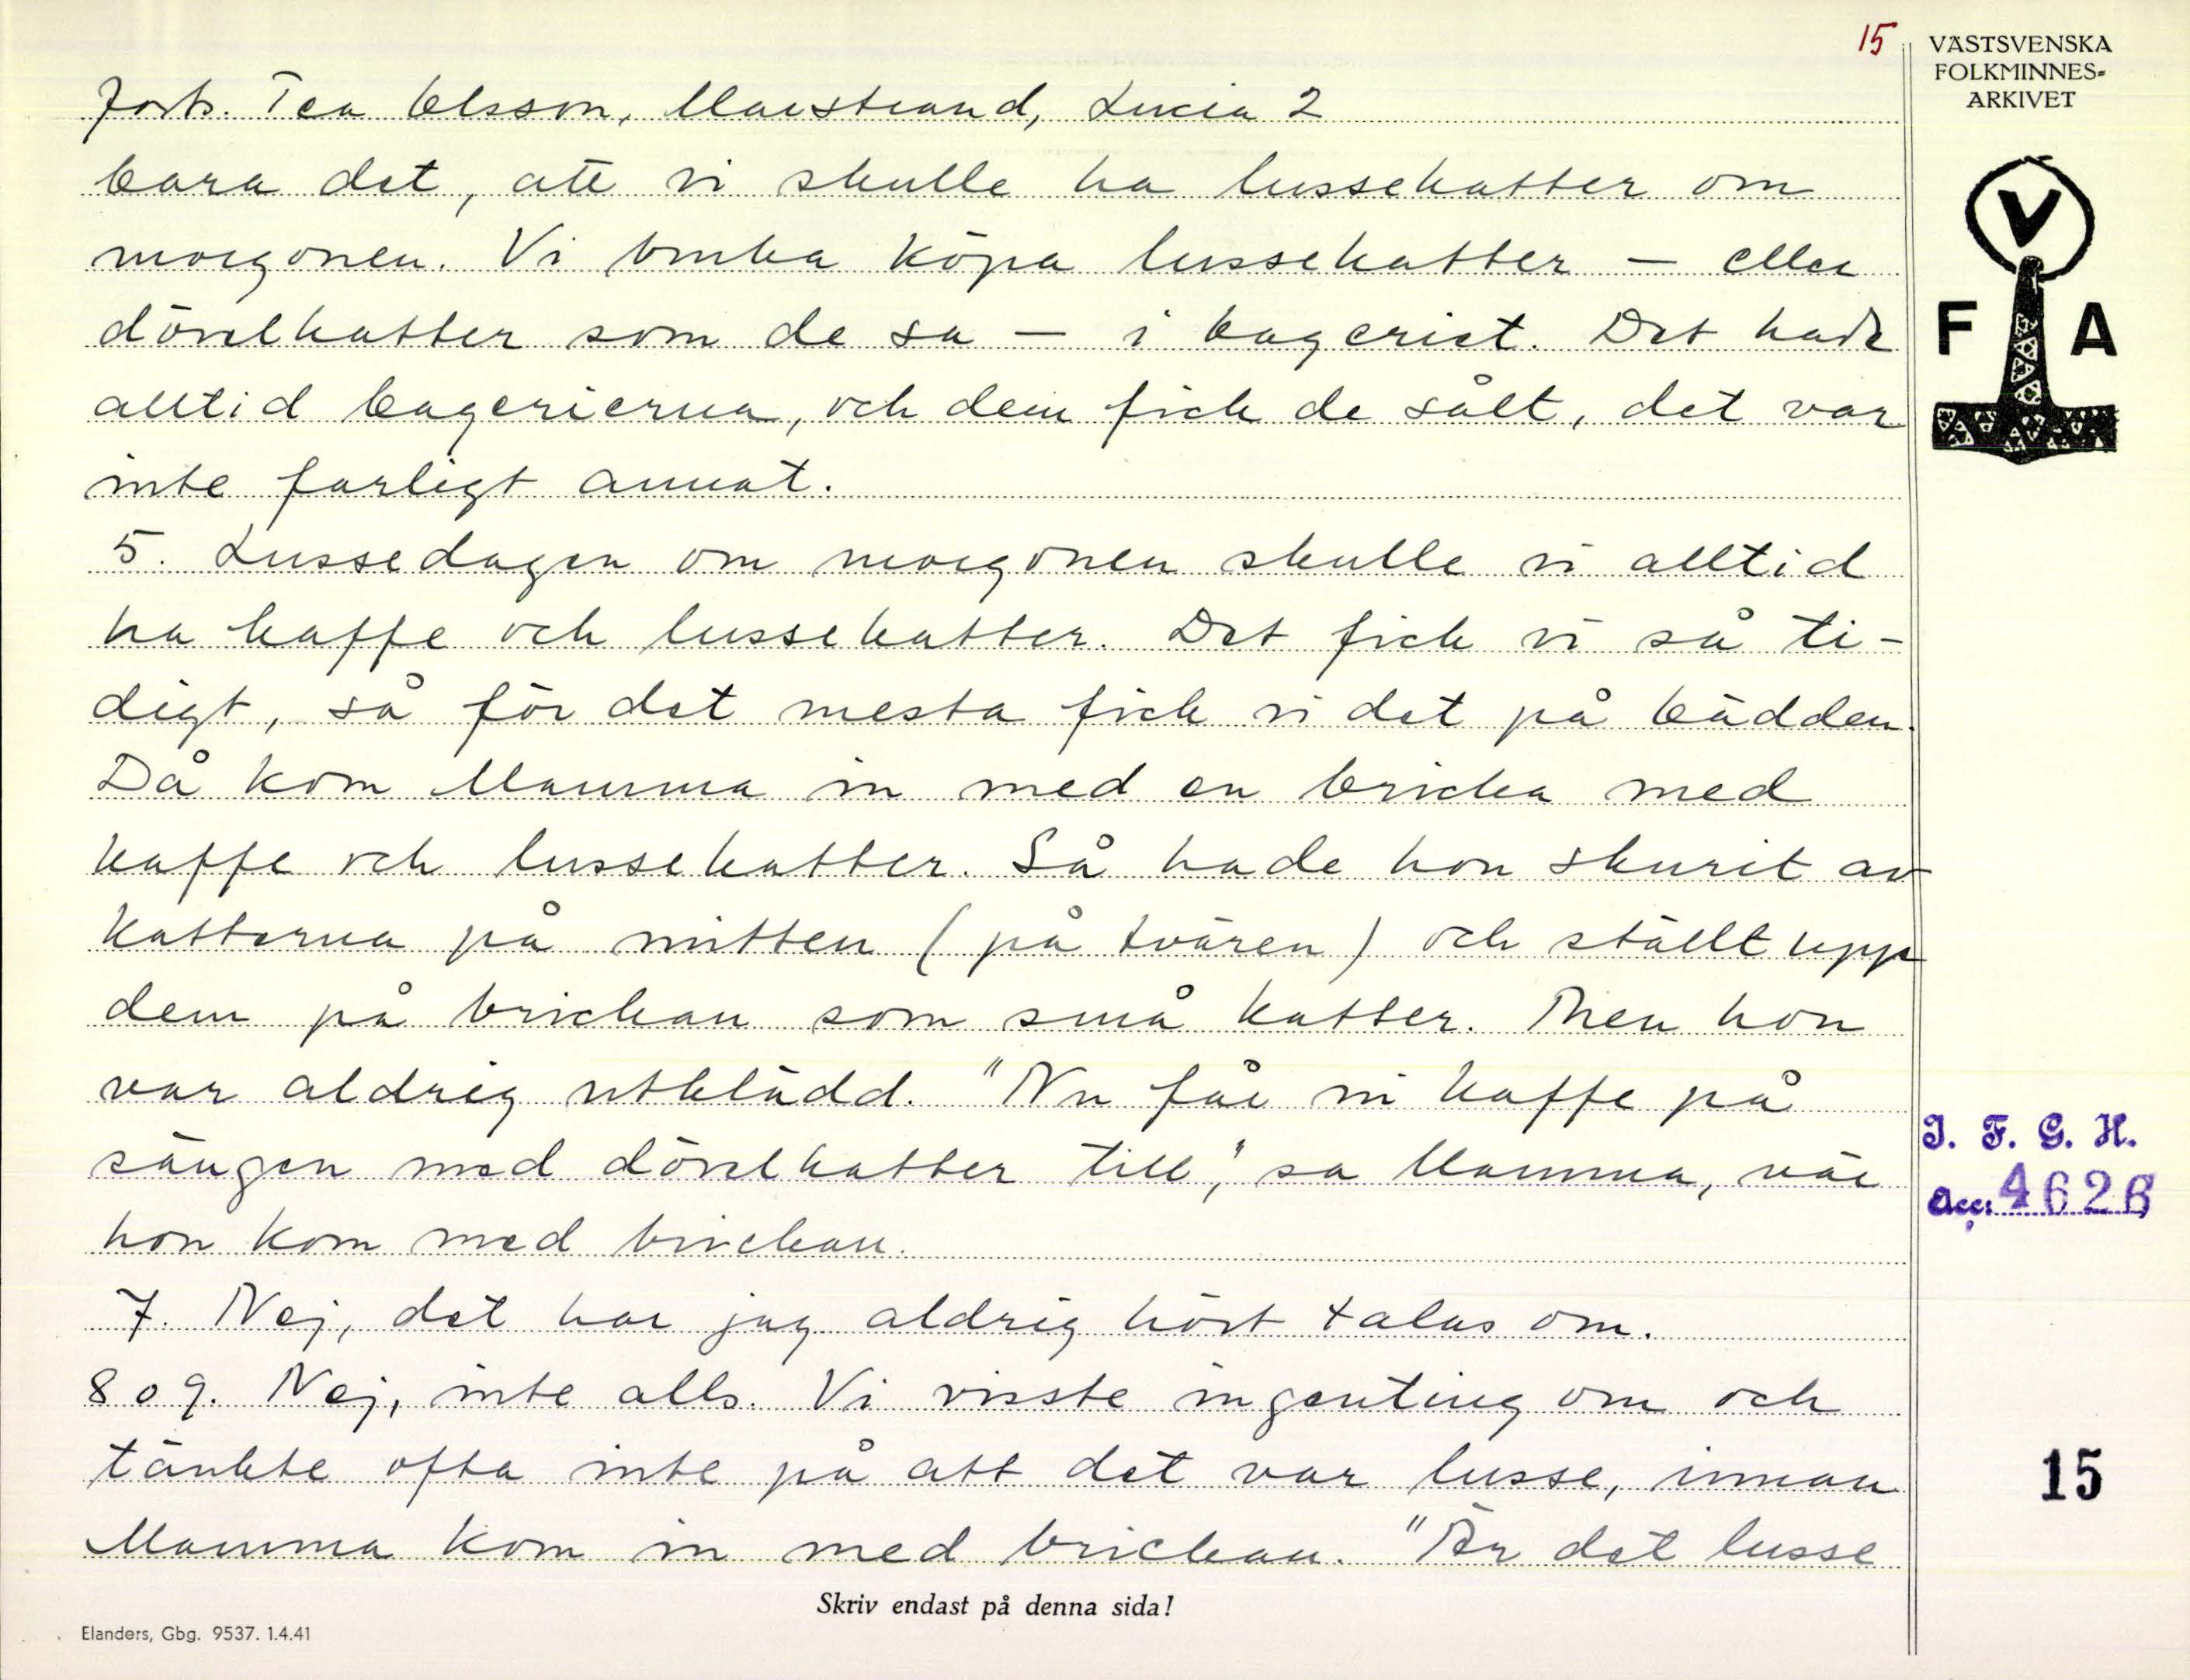 15
VÄSTSVENSKA
FOLKMINNES-
ARKIVET
Forts. Tea Olsson, Marstrand, Lucia 2
bara det, att vi skulle ha lussekatter om
morgonen. Vi bruka köpa lussekatter – eller
dövelkatter som de sa – i bageriet. Det hade
alltid bagerierna, och dem fick de sålt, det var
inte farligt annat.
5. Lussedagen om morgonen skulle vi alltid
ha kaffe och lussekatter. Det fick vi så ti-
digt, så för det mesta fick vi det på bädden.
Då kom Mamma in med en bricka med
kaffe och lussekatter. Så hade hon skurit av
katterna på mitten (på tvären) och ställt upp
dem på brickan som små katter. Men hon
var aldrig utklädd. "Nu får ni kaffe på
sängen med dövelkatter till," sa Mamma, när
hon kom med brickan.
7. Nej, det har jag aldrig hört talas om.
8 o 9. Nej, inte alls. Vi visste ingenting om och
tänkte ofta inte på att det var lusse, innan
Mamma kom in med brickan. "Är det lusse
V
F A
I. F. G. H.
Acc: 4626
15
Skriv endast på denna sida!
Elanders, Gbg. 9537. 1.4.41